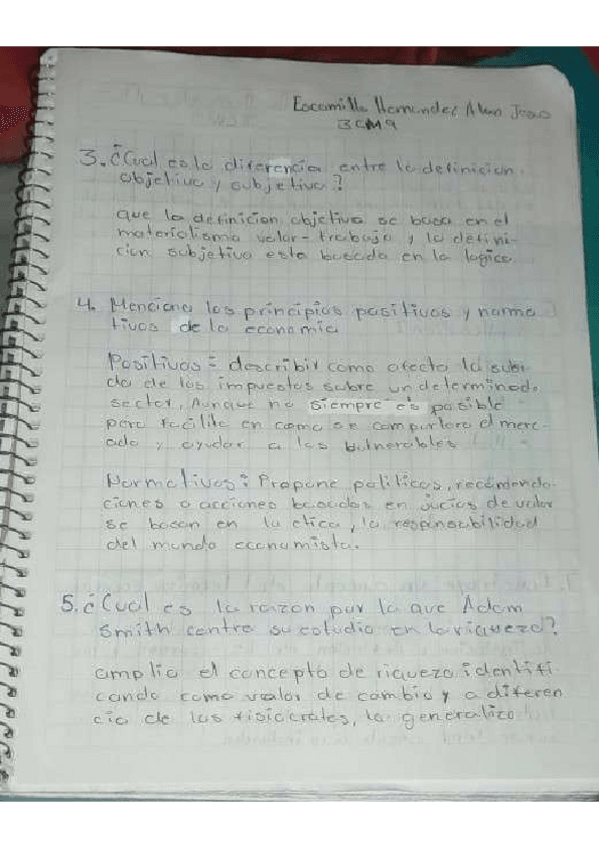 Escamilla Hernandez Alan Joao
3CM9
3. ¿Cual es la diferencia entre la definicion
objetiva y subjetiva?
que la definicion objetiva se basa en el
materialismo valor-trabajo y la defini-
cion subjetiva esta basada en la logica.
4. Menciona los principios positivos y norma
tivos de la economia
Positivas = describir como afecta la subi-
da de los impuestos sobre un determinado
sector, Aunque no siempre es posible
pero facilita en como se comportara el merc-
ado y ayudar a los bulnerables
Normativas: Propone politicas, recomenda-
ciones o acciones basadas en juicios de valor
se basan en la etica, la responsabilidad
del mundo economista.
5. ¿Cual es la razon por la que Adam
Smith centro su estudio en la riqueza?
amplio el concepto de riqueza identifi
cando como valor de cambio y a diferen
cia de los fisiocrates, la generalizo